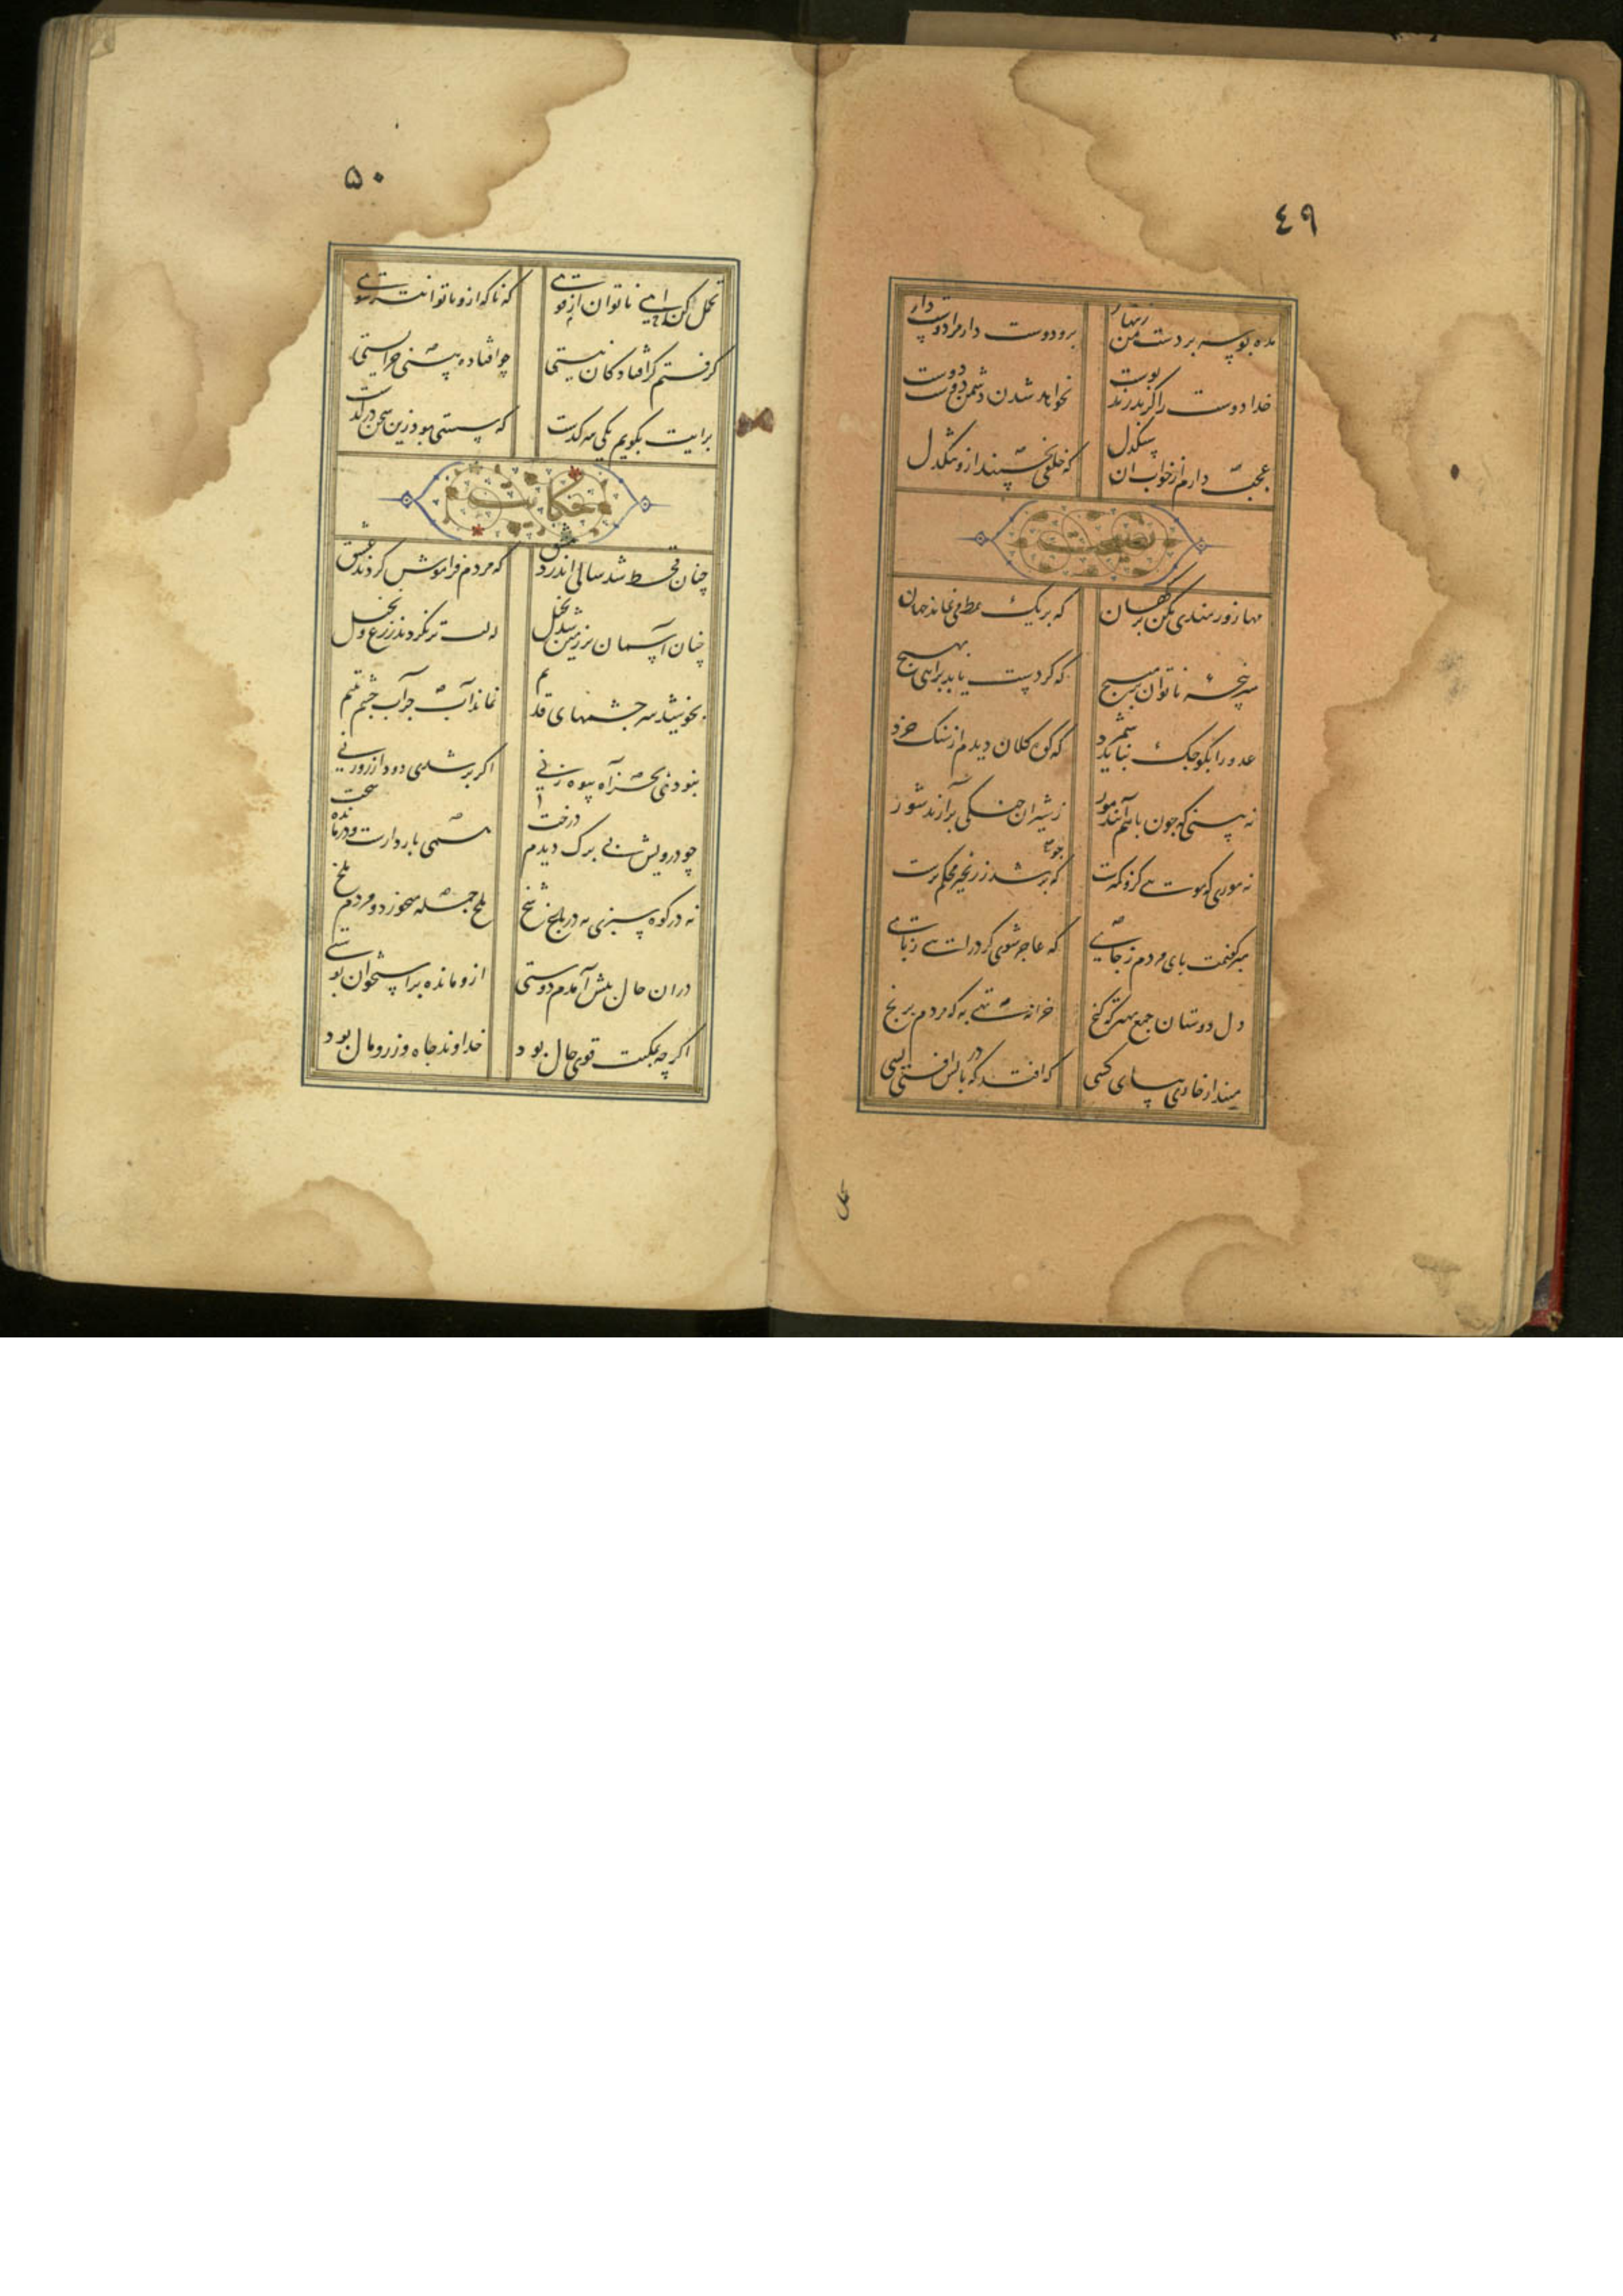 ٤٩
مده بوسه بر دست من زینهار برو دوست دار مرا دوست دار
خدا دوست را گر بدرند پوست نخواهد شدن دشمن دوست دوست
عجب دارم از خواب آن سنگدل که خلقی بخسپند ازو تنگدل
نصیحت
مها زورمندی مکن بر کهان که بر یک نمط می نماند جهان
سر پنجه ناتوان بر مپیچ که گر دست یابد برآیی بهیچ
عدو را بکوچک نباید شمرد که کوه کلان دیدم از سنگ خرد
نه بینی که چون با هم آیند مور ز شیران جنگی برآرند شور
نه موری که مویی کزو کمترست چو پر شد ز زنجیر محکمترست
مبر گفتمت پای مردم ز جای که عاجز شوی گر درآیی ز پای
دل دوستان جمع بهتر که گنج خزانه تهی به که مردم برنج
مینداز خاری بپای کسی که افتد که در پایش افتی بسی
۵۰
تحمل کن ای ناتوان از قوی که ناگه ازو ناتوانتر شوی
گرفتم کز افتادگان نیستی چو افتاده بینی چرا ایستی
برایت بگویم یکی سرگذشت که سستی بود زین سخن درگذشت
حکایت
چنان قحط شد سالی اندر دمشق که مردم فراموش کردند عشق
چنان آسمان بر زمین شد بخیل که لب تر نکردند زرع و نخیل
بخوشید سرچشمهای قدیم نماند آب جز آب چشم یتیم
نبودی بجز آه بیوه زنی اگر بر شدی دود از روزنی
چو درویش بی برک دیدم درخت قوی بازوان سست و درمانده سخت
نه در کوه سبزی نه در باغ شخ ملخ جمله میخورد و مردم ملخ
در آن حال پیش آمدم دوستی ازو مانده بر استخوان پوستی
اگرچه بمکنت قوی حال بود خداوند جاه و زر و مال بود